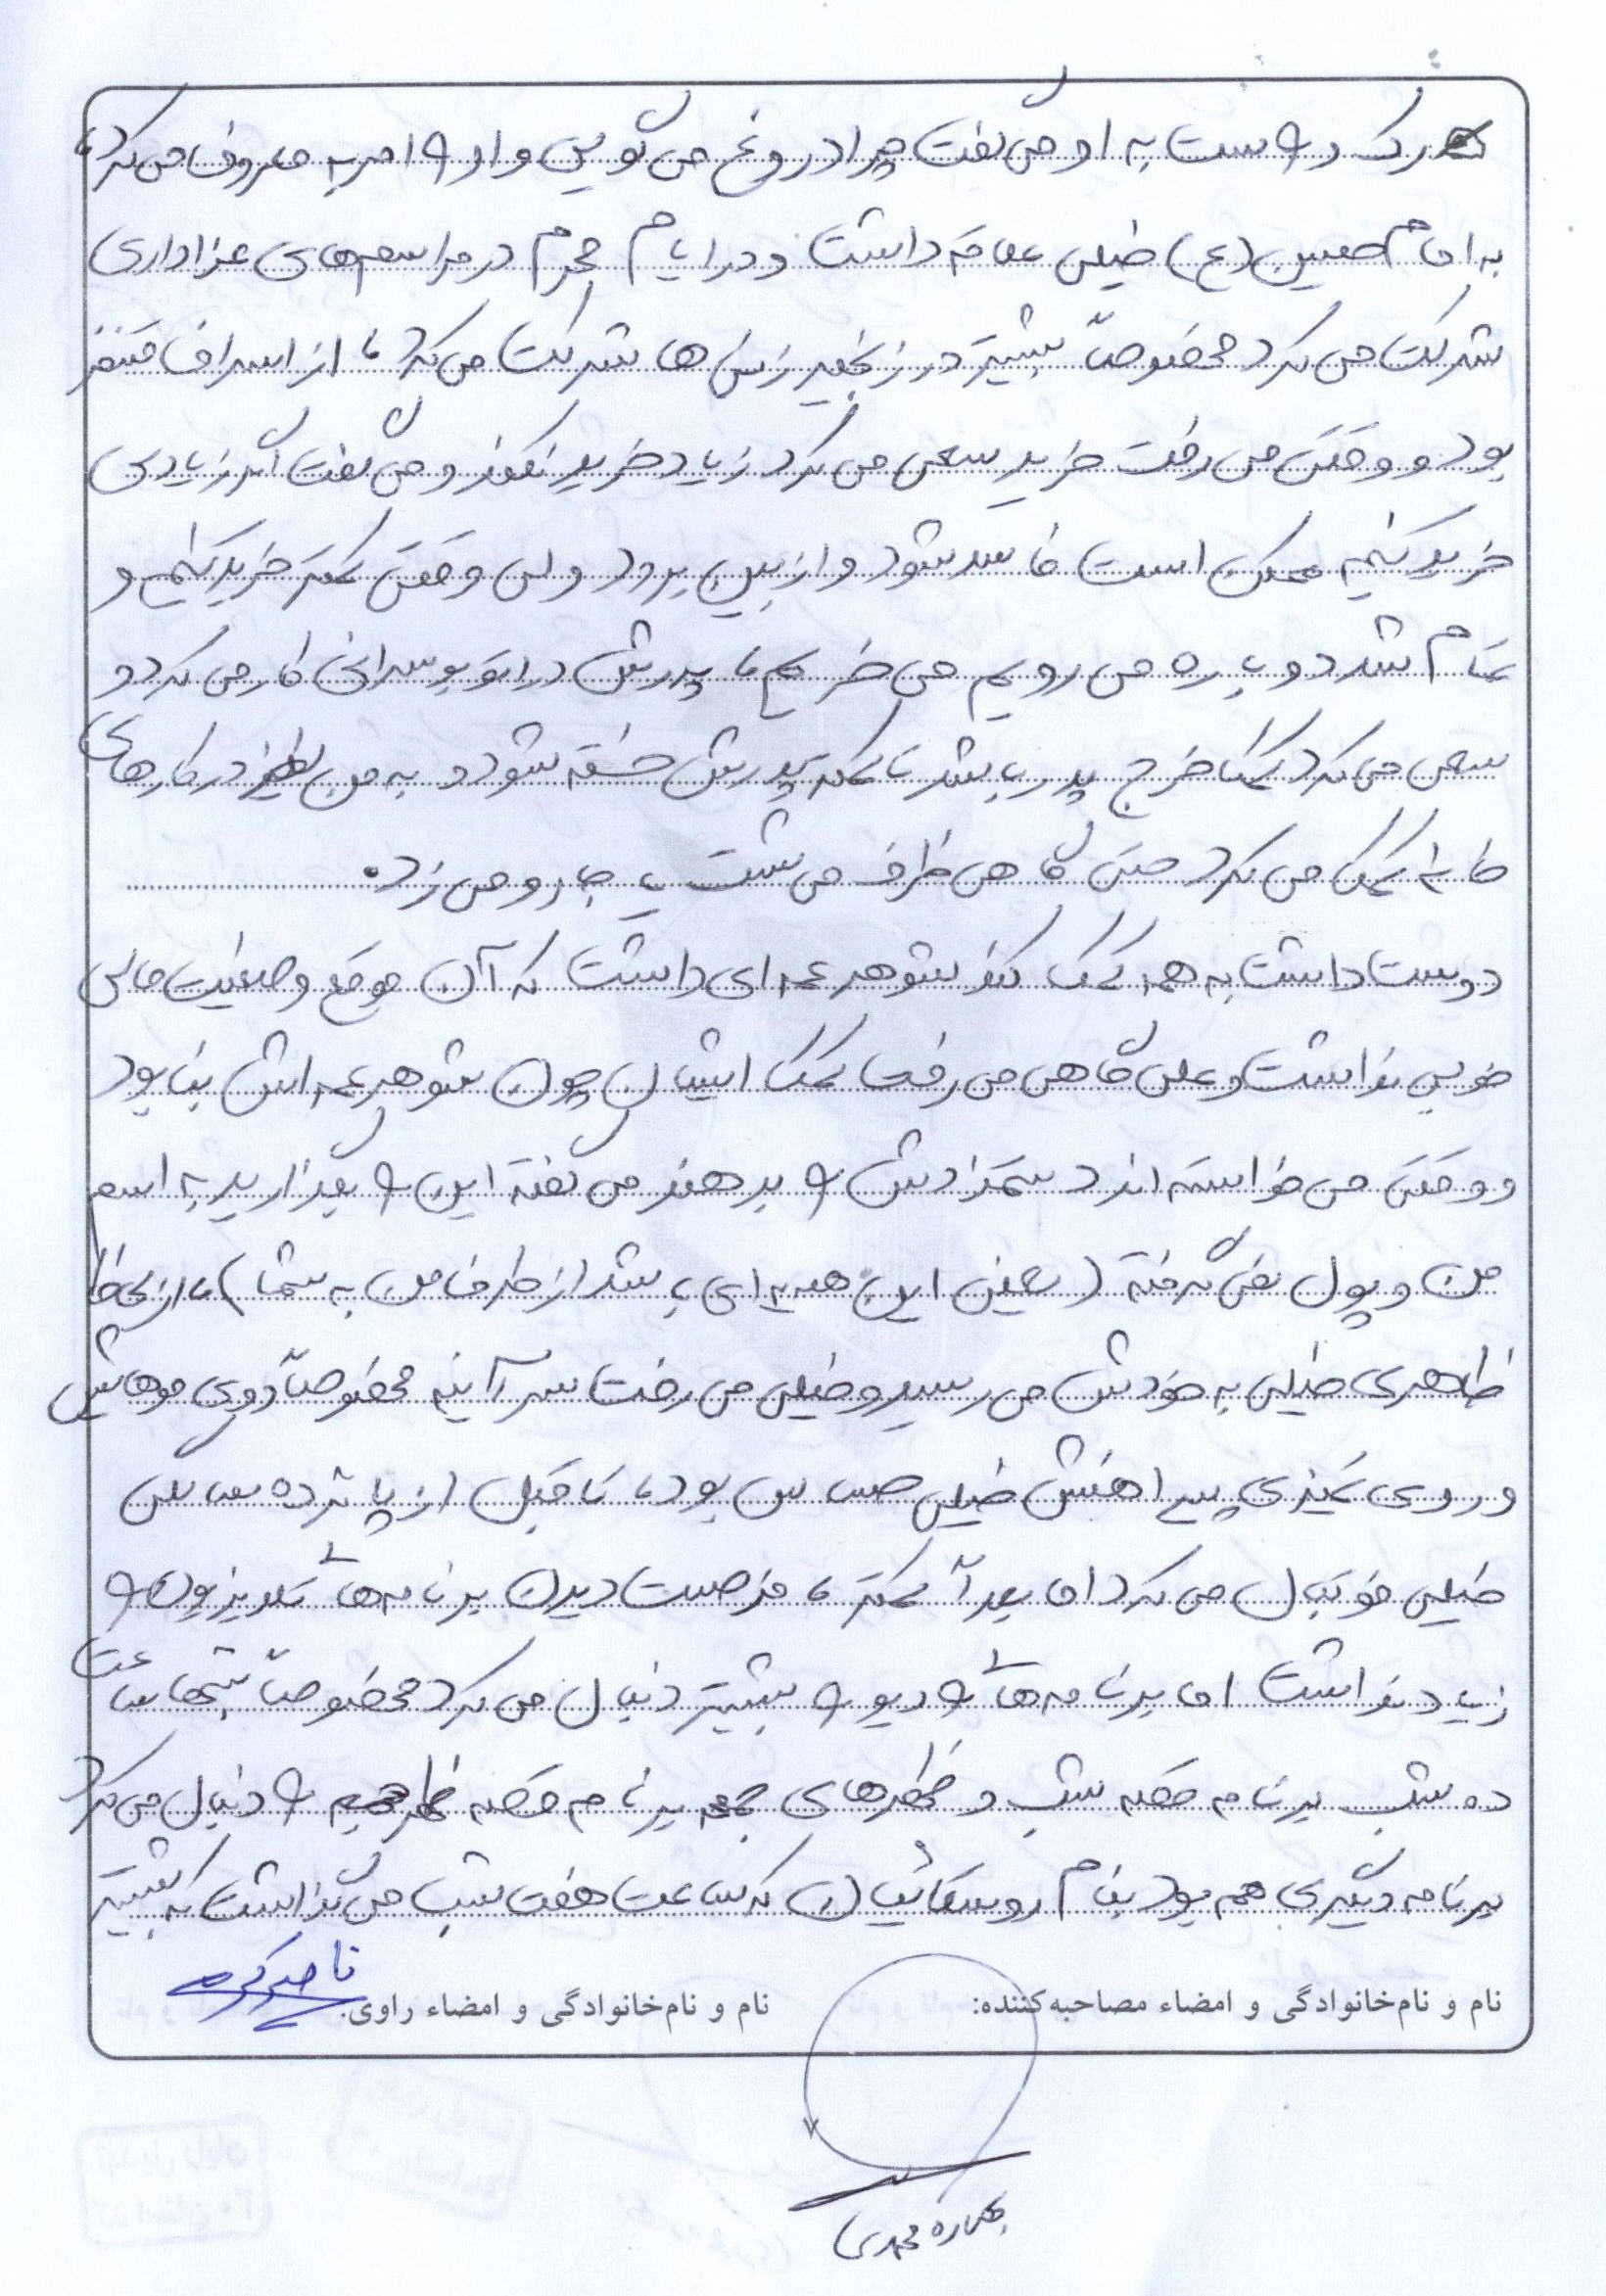 رک و راست به او می‌گفت چرا دروغ می‌گویی و او را امر به معروف می‌کرد،
به امام حسین (ع) خیلی علاقه داشت و در ایام محرم در مراسم‌های عزاداری
شرکت می‌کرد مخصوصاً بیشتر در زنجیر زنی‌ها شرکت می‌کرد، از اسراف متنفر
بود و وقتی می‌رفت خرید سعی می‌کرد زیاد خرید نکند و می‌گفت اگر زیادی
خرید کنیم ممکن است فاسد شود و از بین برود ولی وقتی کمتر خرید کنیم و
تمام شد دوباره می‌رویم می‌خریم، پدرش در اتوبوسرانی کار می‌کرد و
سعی می‌کرد کمک خرج پدر باشد تا کمتر پدرش خسته شود و به من نیز در کارهای
خانه کمک می‌کرد حتی گاهی ظرف می‌شست یا جارو می‌زد.
دوست داشت به همه کمک کند شوهر عمه‌ای داشت که آن موقع وضعیت مالی
خوبی نداشت و علی گاهی می‌رفت کمک ایشان چون شوهر عمه‌اش بنا بود
و وقتی می‌خواسته‌اند دستمزدش را بدهند می‌گفته این را بگذارید به اسم
من و پول نمی‌گرفته (یعنی این هدیه‌ای باشد از طرف من به شما)، از لحاظ
ظاهری خیلی به خودش می‌رسید و خیلی می‌رفت سر آینه مخصوصاً روی موهایش
و روی تمیزی پیراهنش خیلی حساس بود، تا قبل از پانزده سالگی
خیلی فوتبال می‌کرد اما بعداً کمتر، فرصت دیدن برنامه‌های تلویزیون را
زیاد نداشت اما برنامه‌های رادیو را بیشتر دنبال می‌کرد مخصوصاً شبها ساعت
ده شب برنامه قصه شب و ظهرهای جمعه برنامه قصه ظهر جمعه را دنبال می‌کرد
برنامه دیگری هم بود بنام روستائیان که ساعت هفت شب می‌گذاشت که بیشتر
نام و نام‌خانوادگی و امضاء مصاحبه‌کننده: نام و نام‌خانوادگی و امضاء راوی:
محمدی